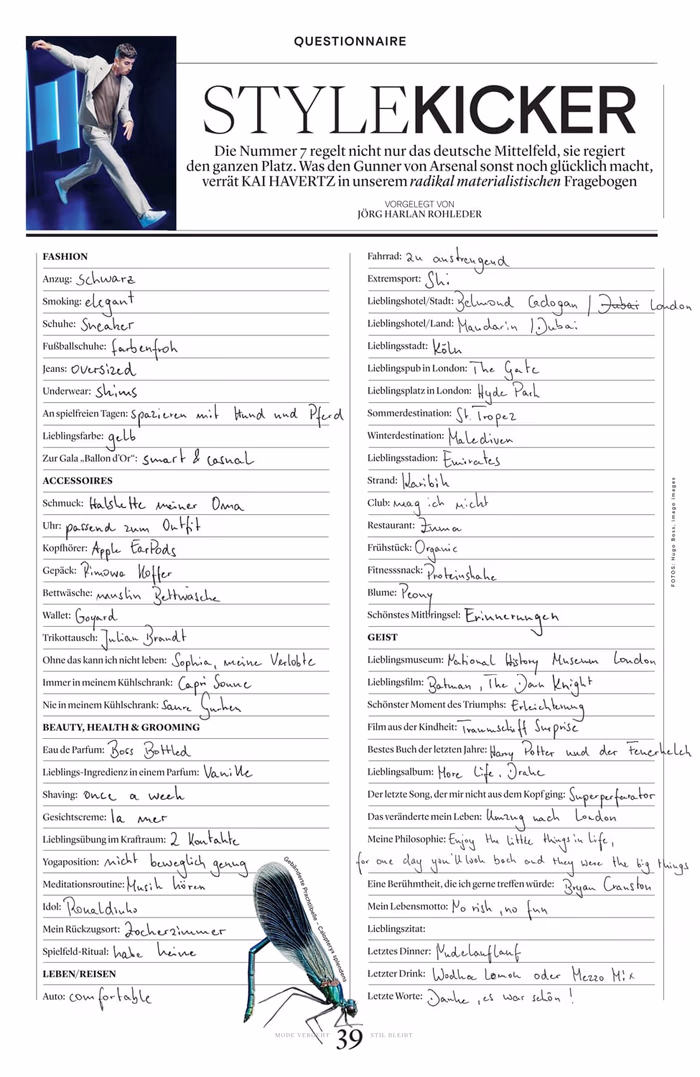 QUESTIONNAIRE
STYLEKICKER
Die Nummer 7 regelt nicht nur das deutsche Mittelfeld, sie regiert
den ganzen Platz. Was den Gunner von Arsenal sonst noch glücklich macht,
verrät KAI HAVERTZ in unserem radikal materialistischen Fragebogen
VORGELEGT VON
JÖRG HARLAN ROHLEDER
FASHION
Anzug: schwarz
Smoking: elegant
Schuhe: Sneaker
Fußballschuhe: farbenfroh
Jeans: oversized
Underwear: skims
An spielfreien Tagen: spazieren mit Hund und Pferd
Lieblingsfarbe: gelb
Zur Gala „Ballon d'Or“: smart & casual
ACCESSOIRES
Schmuck: Halskette meiner Oma
Uhr: passend zum Outfit
Kopfhörer: Apple EarPods
Gepäck: Rimowa Koffer
Bettwäsche: muslin Bettwäsche
Wallet: Goyard
Trikottausch: Julian Brandt
Ohne das kann ich nicht leben: Sophia, meine Verlobte
Immer in meinem Kühlschrank: Capri Sonne
Nie in meinem Kühlschrank: Saure Gurken
BEAUTY, HEALTH & GROOMING
Eau de Parfum: Boss Bottled
Lieblings-Ingredienz in einem Parfum: Vanille
Shaving: once a week
Gesichtscreme: la mer
Lieblingsübung im Kraftraum: 2 Kontakte
Yogaposition: nicht beweglich genug
Meditationsroutine: Musik hören
Idol: Ronaldinho
Mein Rückzugsort: Zockerzimmer
Spielfeld-Ritual: habe keine
LEBEN/REISEN
Auto: comfortable
Fahrrad: zu anstrengend
Extremsport: Ski
Lieblingshotel/Stadt: Belmond Cadogan / Dubai London
Lieblingshotel/Land: Mandarin / Dubai
Lieblingsstadt: Köln
Lieblingspub in London: The Gate
Lieblingsplatz in London: Hyde Park
Sommerdestination: St. Tropez
Winterdestination: Malediven
Lieblingsstadion: Emirates
Strand: Karibik
Club: mag ich nicht
Restaurant: Zuma
Frühstück: Organic
Fitnesssnack: Proteinshake
Blume: Peony
Schönstes Mitbringsel: Erinnerungen
GEIST
Lieblingsmuseum: National History Museum London
Lieblingsfilm: Batman, The Dark Knight
Schönster Moment des Triumphs: Erleichterung
Film aus der Kindheit: Traumschiff Surprise
Bestes Buch der letzten Jahre: Harry Potter und der Feuerkelch
Lieblingsalbum: More Life, Drake
Der letzte Song, der mir nicht aus dem Kopf ging: Superperforator
Das veränderte mein Leben: Umzug nach London
Meine Philosophie: Enjoy the little things in life,
for one day you'll look back and they were the big things
Eine Berühmtheit, die ich gerne treffen würde: Bryan Cranston
Mein Lebensmotto: No risk, no fun
Lieblingszitat:
Letztes Dinner: Nudelauflauf
Letzter Drink: Wodka Lemon oder Mezzo Mix
Letzte Worte: Danke, es war schön!
Gebänderte Prachtlibelle – Calopteryx splendens
FOTOS: Hugo Boss, Imago Images
MODE VERGEHT 39 STIL BLEIBT